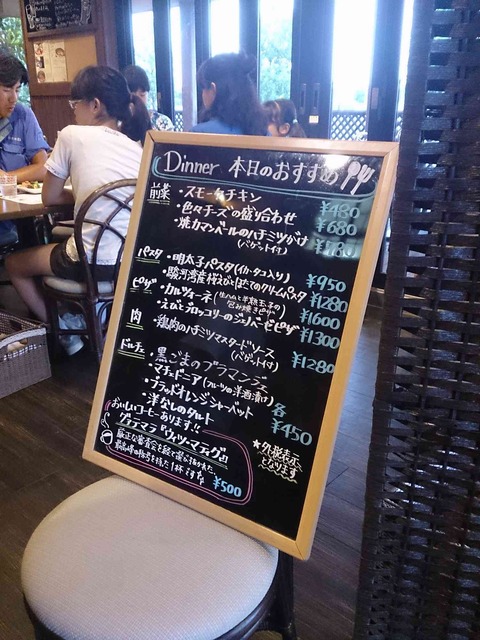 Dinner 本日のおすすめ
前菜
・スモークチキン ¥480
・色々チーズの盛り合わせ ¥680
・焼カマンベールのハチミツがけ ¥780
(バゲット付)
パスタ
・明太子パスタ(イカ・タコ入り) ¥950
・駿河湾産桜えびとほたてのクリームパスタ ¥1280
ピザ
・カルツォーネ(生ハムと半熟玉子の包み焼きピザ) ¥1600
・えびとブロッコリーのジェノベーゼピザ ¥1300
肉
・鶏肉のハチミツマスタードソース ¥1280
(バゲット付)
ドルチェ
・黒ごまのブラマンジェ
・マチェドニア(フルーツの洋酒漬け)
・ブラッドオレンジシャーベット
・洋なしのタルト
各¥450
おいしいコーヒーあります!!
グァテマラ『ウィツマディグ』
厳正な審査会を経て選び抜かれた、
最高峰の称号を持た1杯ですな ¥500
★外税表示となります